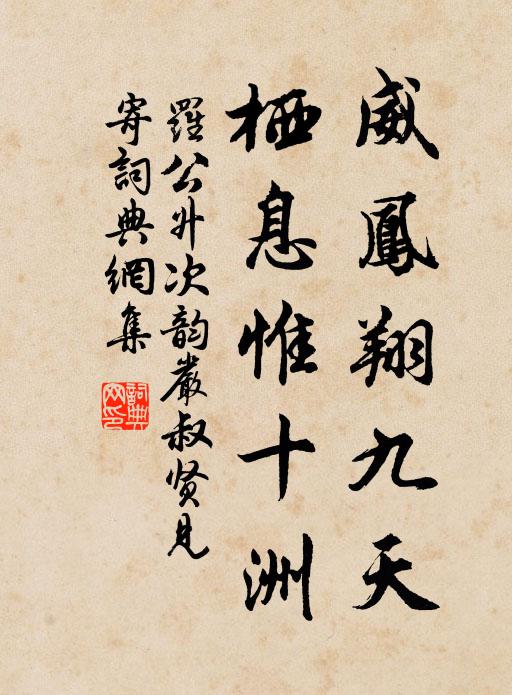 威鳳翔九天
栖息惟十洲
羅公升次韵嚴叔贤見
寄詞典網集
詞典
网印